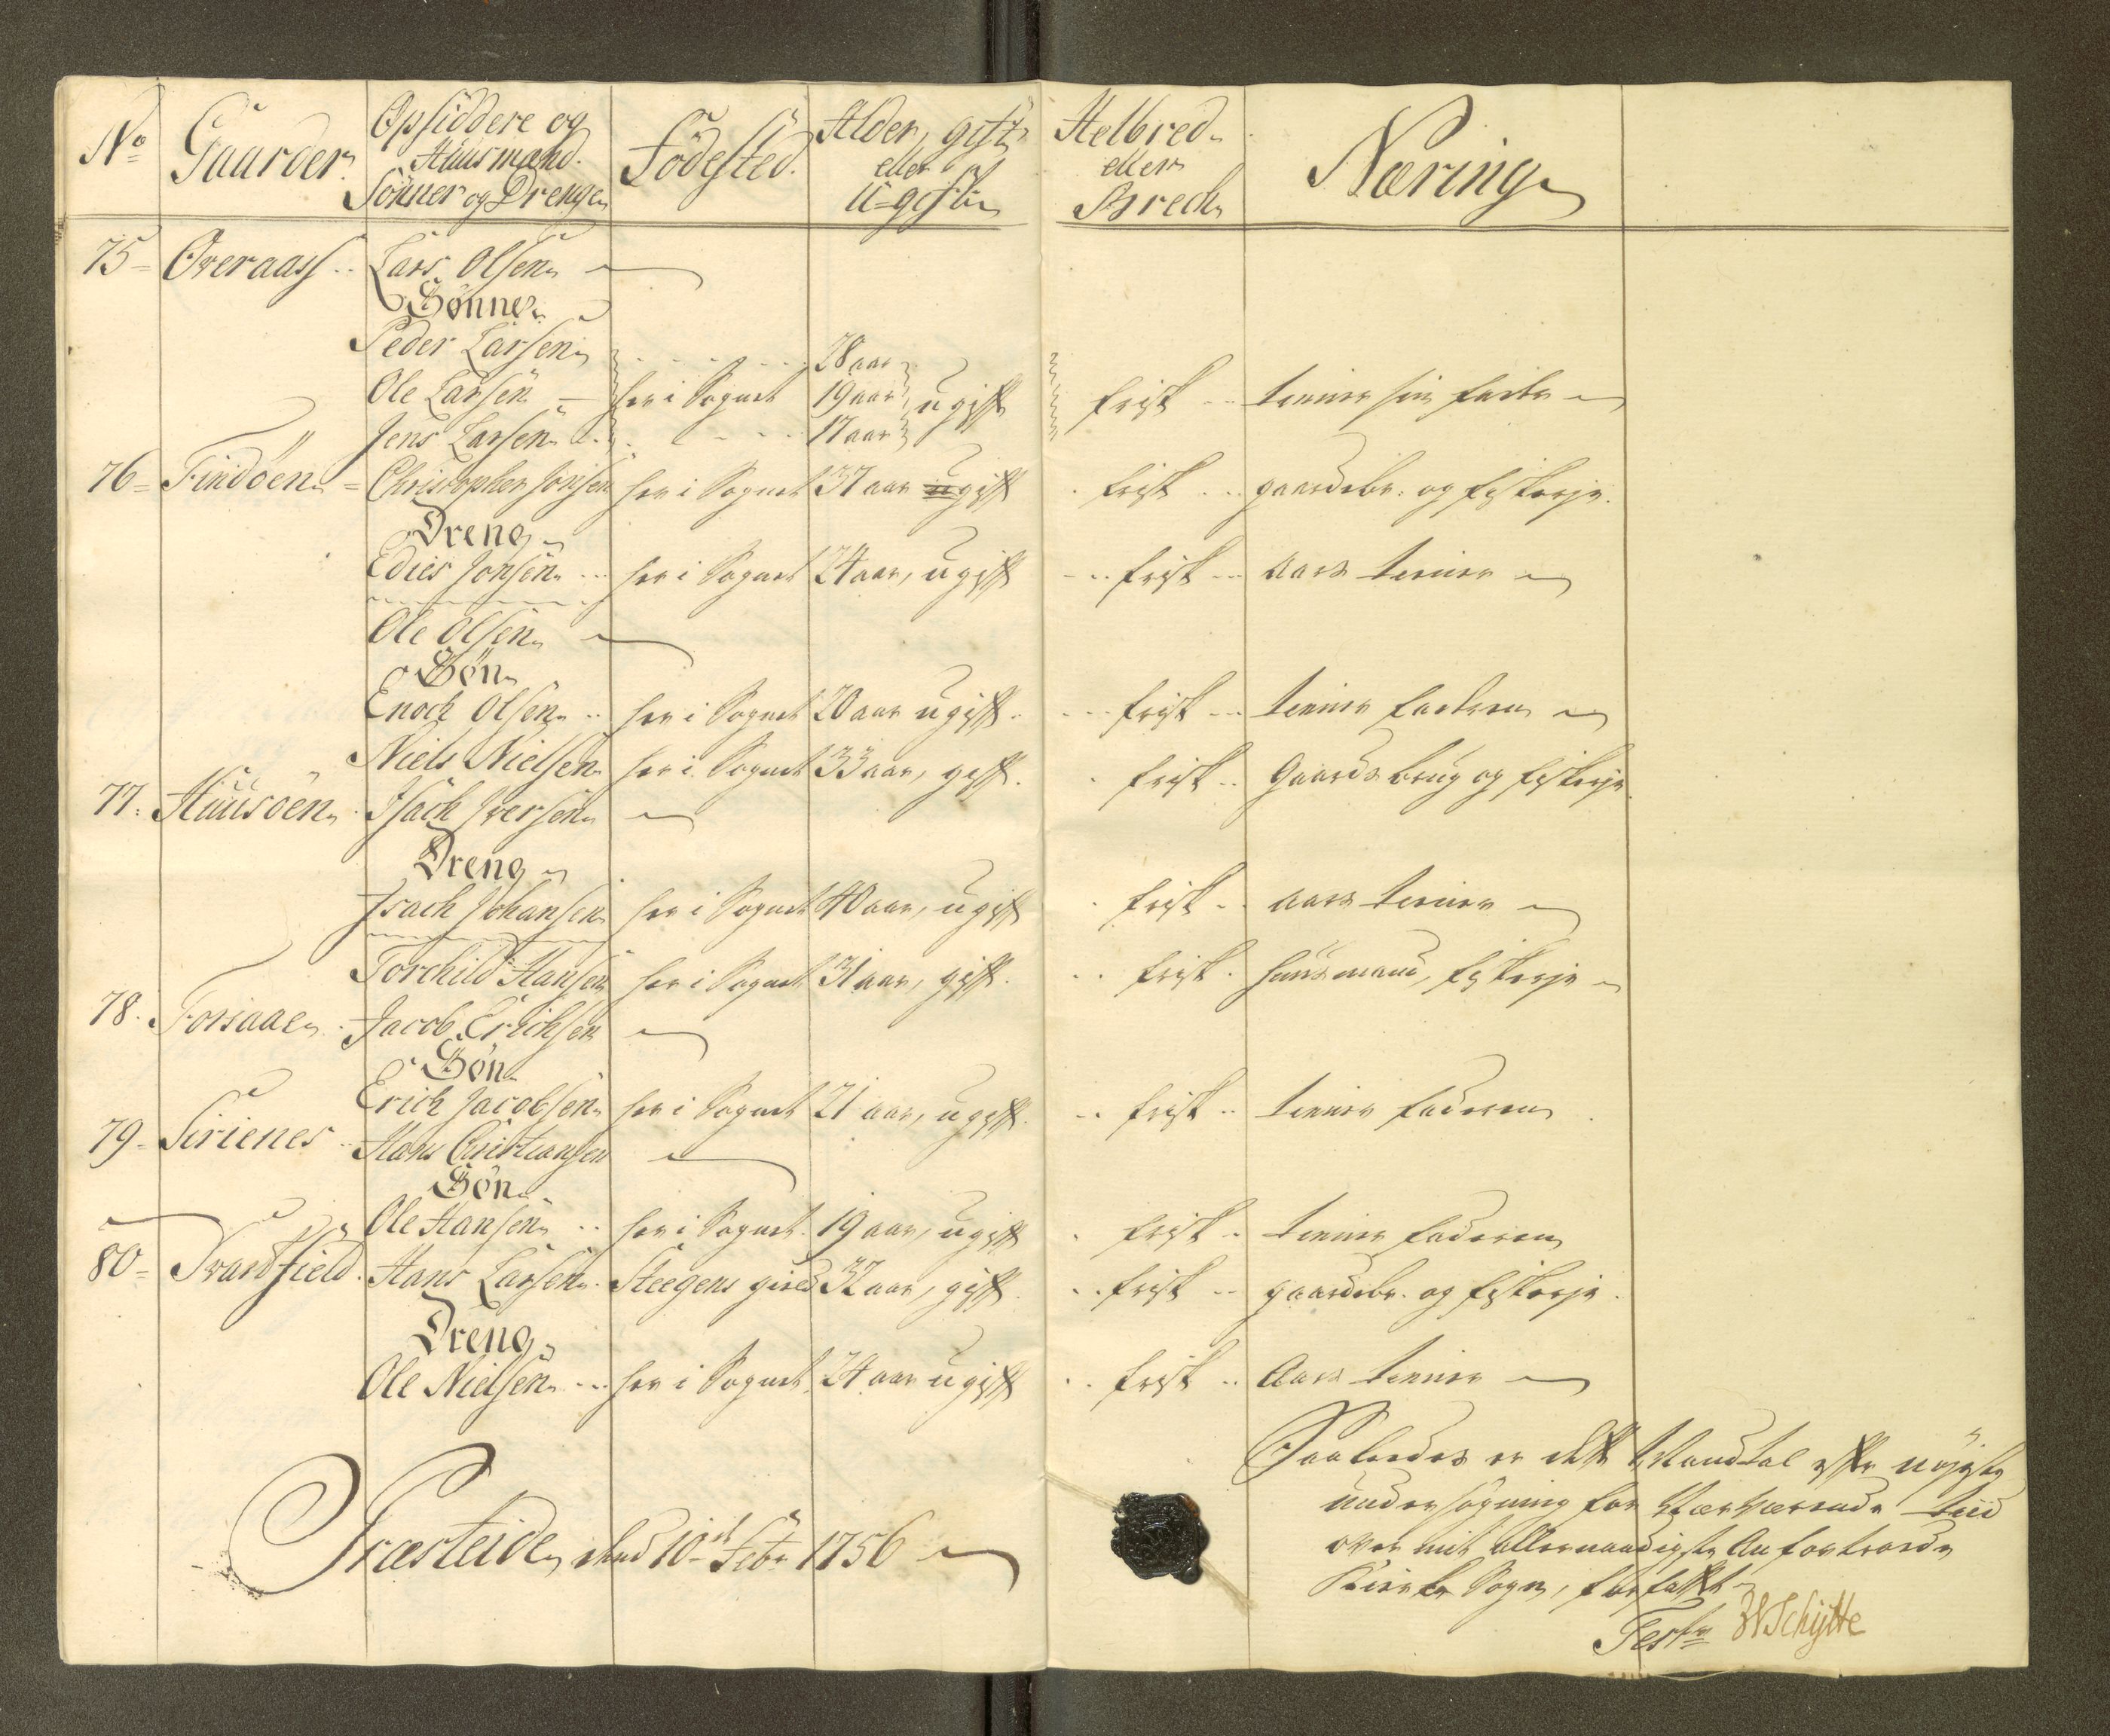 No Gaarder. Opsiddere og Huusmænd. Sönner og Drenge Födested. Alder, gift eller U-gift Helbred eller Brech Næring
75 Overaas Lars Olsen
Sönner
Peder Larsen 28 aar
Ole Larsen her i Sognet 19 aar ugift frisk tienner sin fader
Jens Larsen 17 aar
76 Findöen Christopher Jonsen her i Sognet 37 aar gift frisk gaardsbr. og fiskerje.
Dreng
Edies Jonsen her i Sognet 24 aar, ugift frisk aars tienner
Ole Olsen
Sön
Enoch Olsen her i Sognet 20 aar ugift frisk tienner faderen
Niels Nielsen her i Sognet 33 aar, gift. frisk Gaards brug og fiskerje
77. Huusöen Isach Iversen
Dreng
Isach Johansen her i Sognet 40 aar, ugift frisk aars tienner
Torchild Hansen her i Sognet 31 aar, gift. frisk huusmand, fiskerje
78. Forsaae Jacob Erichsen
Sön
Erich Jacobsen her i Sognet 21 aar, ugift. frisk tienner faderen
79 Sirienes Hans Christiansen
Sön
Ole Hansen her i Sognet 19 aar, ugift frisk tienner faderen
80 Svartfield Hans Larsen Steegens gield 32 aar, gift frisk gaardsbr. og fiskerje.
Dreng
Ole Nielsen her i Sognet 24 aar ugift frisk Aars tienner
Saaledes er dette Mandtal efter nöjeste
undersögning for nærværende tiid
over mit allernaadigste Anfortroede
Kirke Sogn, forfattet
Præsteide, dend 10de Febr 1756
Test. Schÿtte